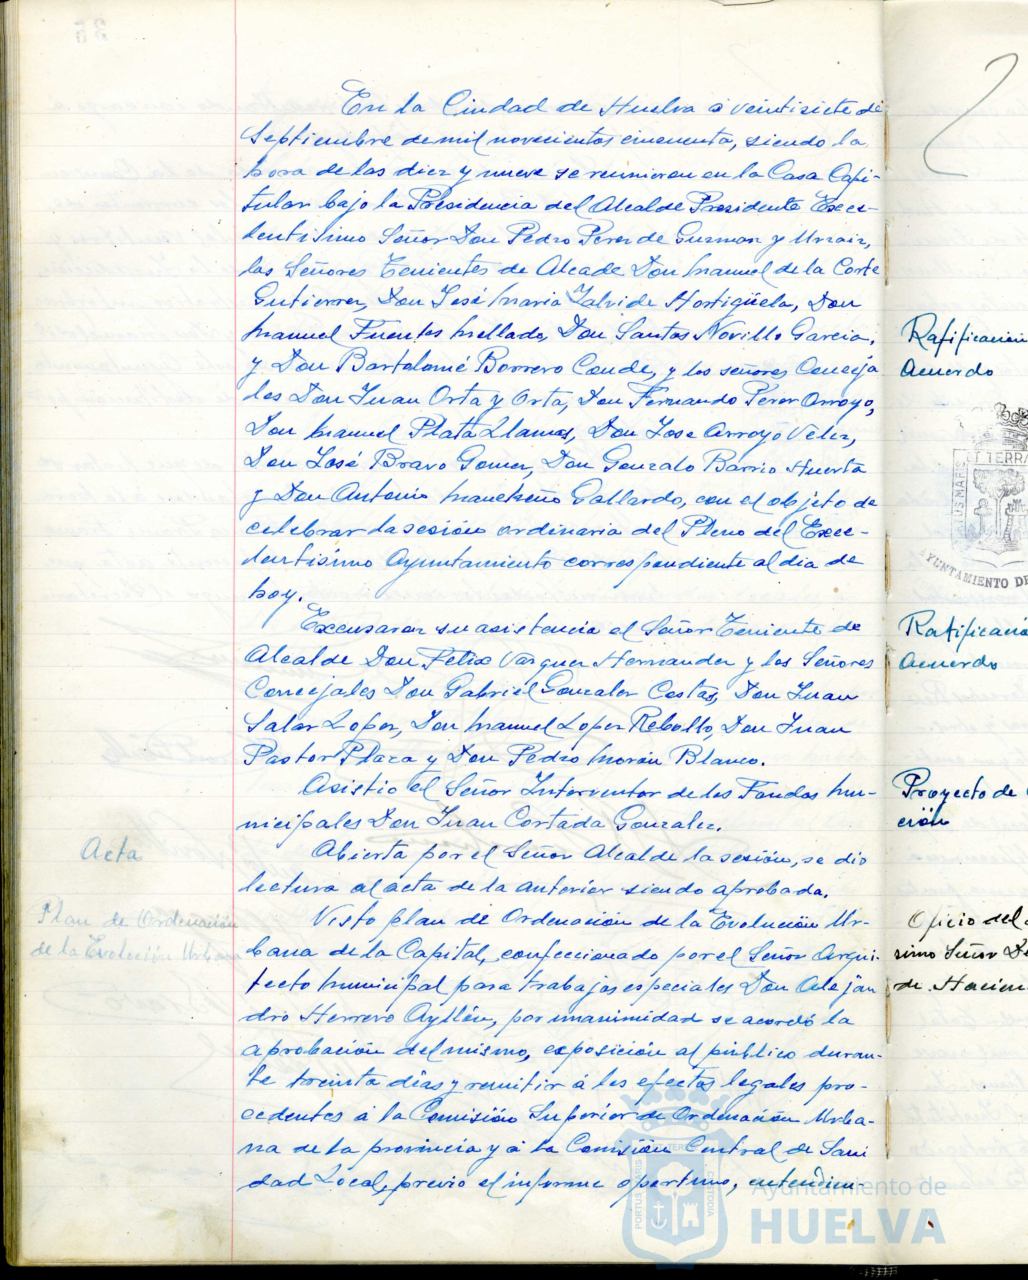 En la Ciudad de Huelva a veintisiete de
Septiembre de mil novecientos cincuenta, siendo la
hora de las diez y nueve se reunieron en la Casa Capi-
tular bajo la Presidencia del Alcalde Presidente Exce-
lentisimo Señor Don Pedro Perez de Guzman y Urzaiz,
los Señores Tenientes de Alcade Don Manuel de la Corte
Gutierrez, Don José Maria Jalvide Hortigüela, Don
Manuel Fuentes Mellado, Don Santos Novillo Garcia,
y Don Bartolomé Borrero Conde, y los señores Conceja
les Don Juan Orta y Orta, Don Fernando Perez Arroyo,
Don Manuel Plata Llamas, Don Jose Arroyo Velez,
Don José Bravo Gomez, Don Gonzalo Barrio Huerta
y Don Antonio Mancheño Gallardo, con el objeto de
celebrar la sesión ordinaria del Pleno del Exce-
lentisimo Ayuntamiento correspondiente al dia de
hoy.
Excusaron su asistencia el Señor Teniente de
Alcalde Don Felix Vazquez Hernandez y los Señores
Concejales Don Gabriel Gonzalez Costas, Don Juan
Salas Lopez, Don Manuel Lopez Rebollo, Don Juan
Pastor Plaza y Don Pedro Morón Blanco.
Asistio el Señor Interventor de los Fondos Mu-
nicipales Don Juan Cortada Gonzalez.
Acta
Abierta por el Señor Alcalde la sesión, se dio
lectura al acta de la anterior siendo aprobada.
Plan de Ordenación
de la Evolución Urbana
Visto plan de Ordenación de la Evolución Ur-
bana de la Capital, confeccionado por el Señor Arqui-
tecto Municipal para trabajos especiales Don Alejan
dro Herrero Ayllón, por unanimidad se acordó la
aprobación del mismo, exposición al público duran-
te treinta dias y remitir á los efectos legales pro-
cedentes á la Comisión Superior de Ordenación Urba-
na de la provincia y á la Comisión Central de Sani
dad Local, previo el informe oportuno, entendien-
Ratificación
Acuerdo
Ratificació
Acuerdo
Proyecto de
ción
Oficio del
simo Señor De
de Hacien
AYUNTAMIENTO DE
PORTUS MARIS ET TERRAE CUSTODIA
Ayuntamiento de
HUELVA